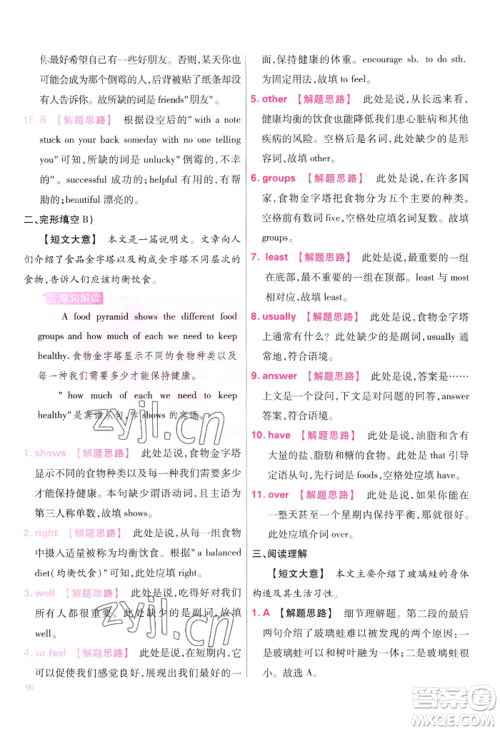 你最好希望自己有一些好朋友。某天你也
可能成为那个倒霉的人,背后贴了纸条却没
有人告诉你。故所缺的词是 friends"朋友"。
15. B 【解题思路】 根据设空后的"with a note
stuck on your back someday with no one telling
you"可知,所缺的词是 unlucky"倒霉的,不幸
的"。successful 成功的; helpful 有帮助的,有
益的; beautiful 漂亮的。
二、完形填空 B)
【短文大意】 本文是一篇说明文。文章向人
们介绍了食品金字塔以及构成金字塔不同层次的
食物,告诉人们应该均衡饮食。
难句解读
A food pyramid shows the different food
groups and how much of each we need to keep
healthy. 食物金字塔显示不同的食物种类以及
我们每种需要吃多少才能保持健康。
" how much of each we need to keep
healthy"是宾语从句,作 shows 的宾语。
1. shows 【解题思路】 此处是说,食物金字塔
显示不同的食物种类以及我们每一种需要吃
多少才能保持健康。本句缺少谓语动词,为
第三人称单数,故填 shows。
2. right 【解题思路】 此处是说,从每一组食物
中吃适量的食物被称为均衡饮食。"a balanced
diet(均衡饮食)"可知,空格处应填 right。
3. well 【解题思路】 此处是说,它能使我们好
好成长。此处缺少的是副词,故填副词
well。
4. to feel 【解题思路】 此处是说,在短期内,它
可以使我们感觉良好,展现出我们最好的一
96
面,保持健康的体重。encourage sb. to do sth.
为固定用法,故填 to feel。
5. other 【解题思路】 此处是说,从长远来看,
健康均衡的饮食可以降低我们患心脏病和其他
疾病的风险。空格后是名词,故此处缺少的是
形容词,故填 other。
6. groups 【解题思路】 此处是说,在许多国
家,食物金字塔把食物分为五个主要的种类。
空格前缀 five, 空格处应填名词复数。故填
groups。
7. least 【解题思路】 此处是说,最重要的一组
在底部,最不重要的一组在顶部,故填 least。
8. usually 【解题思路】 此处是说,食物金字塔
上通常有什么?此处缺少的是副词, usually 通
常,符合语境。
9. answer 【解题思路】 此处是说,答案是……
上文是一个设问,下文为回答, answer 答案,
符合语境。
10. have 【解题思路】 此处是说,油脂和含有
大量的盐、脂肪和糖的食物。此处是 that 引
导定语从句,先行词是 foods,空格处应填 have。
11. over 【解题思路】 此处是说,你应该设法在
一天结束时或一个星期内保持平衡。over 在
……期间,空格处应填介词 over。
三、阅读理解
【短文大意】 本文主要介绍了玻璃蛙的身体
构造及其生活习性。
1. A 【解题思路】 细节理解题。第二段的最后
两句介绍了玻璃蛙非常小,常常是绿色的,这
使得玻璃蛙可以和树叶融为一体,从而可以很
好地躲藏,故选 A。